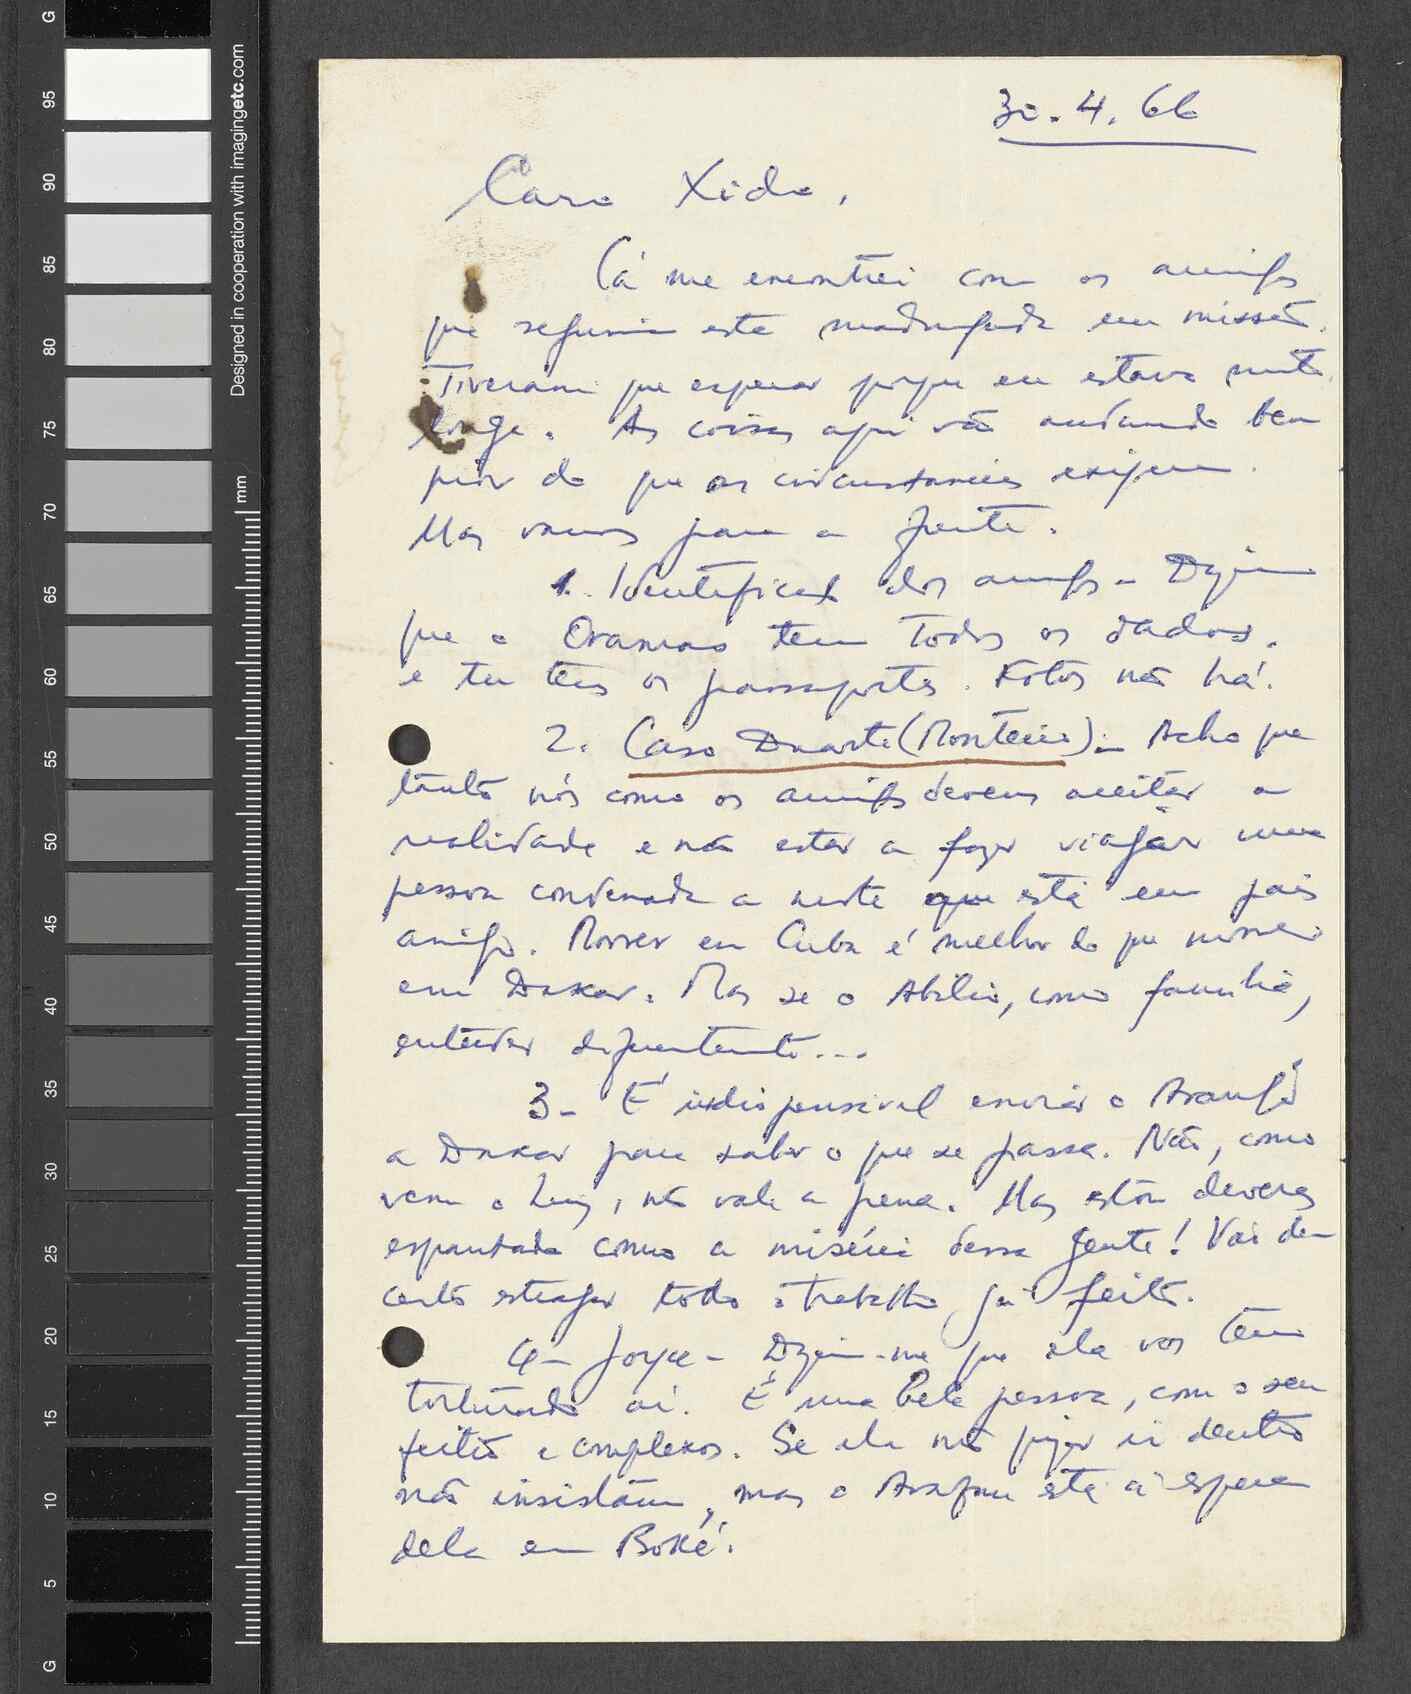 30.4.66
Caro Xido,
Cá me encontrei com os amigos
que seguiram esta madrugada em missão.
Tiveram que esperar porque eu estava muito
longe. As coisas aqui vão andando bem
pior do que as circunstancias exigem.
Mas vamos para a frente.
1. Identificação dos amigos - Dizem
que o Oramas tem todos os dados.
e tu tens os passaportes. Fotos não há.
2. Caso Duarte (Monteiro). - Acho que
tanto nós como os amigos devem aceitar a
realidade e não estar a fazer viajar uma
pessoa condenada a morte que está em país
amigo. Morrer em Cuba é melhor do que morrer
em Dakar. Mas se o Abílio, como família,
entender diferentemente...
3 - É indispensável enviar o Araujo
a Dakar para saber o que se passa. Não, como
vem o Luiz, não vale a pena. Mas estou deveras
espantado como a miséria dessa gente! Vai de-
certo estragar todo o trabalho já feito.
4 - Joyce - Dizem-me que ela vos tem
torturado aí. É uma bela pessoa, com o seu
feitio e complexos. Se ela não quizer ir dentro
não insistam, mas o Arafam está à espera
dela em Boké.
G
95
90
85
80
75
70
65
60
55
50
45
40
35
30
25
20
15
10
5
G
Designed in cooperation with imagingetc.com
mm